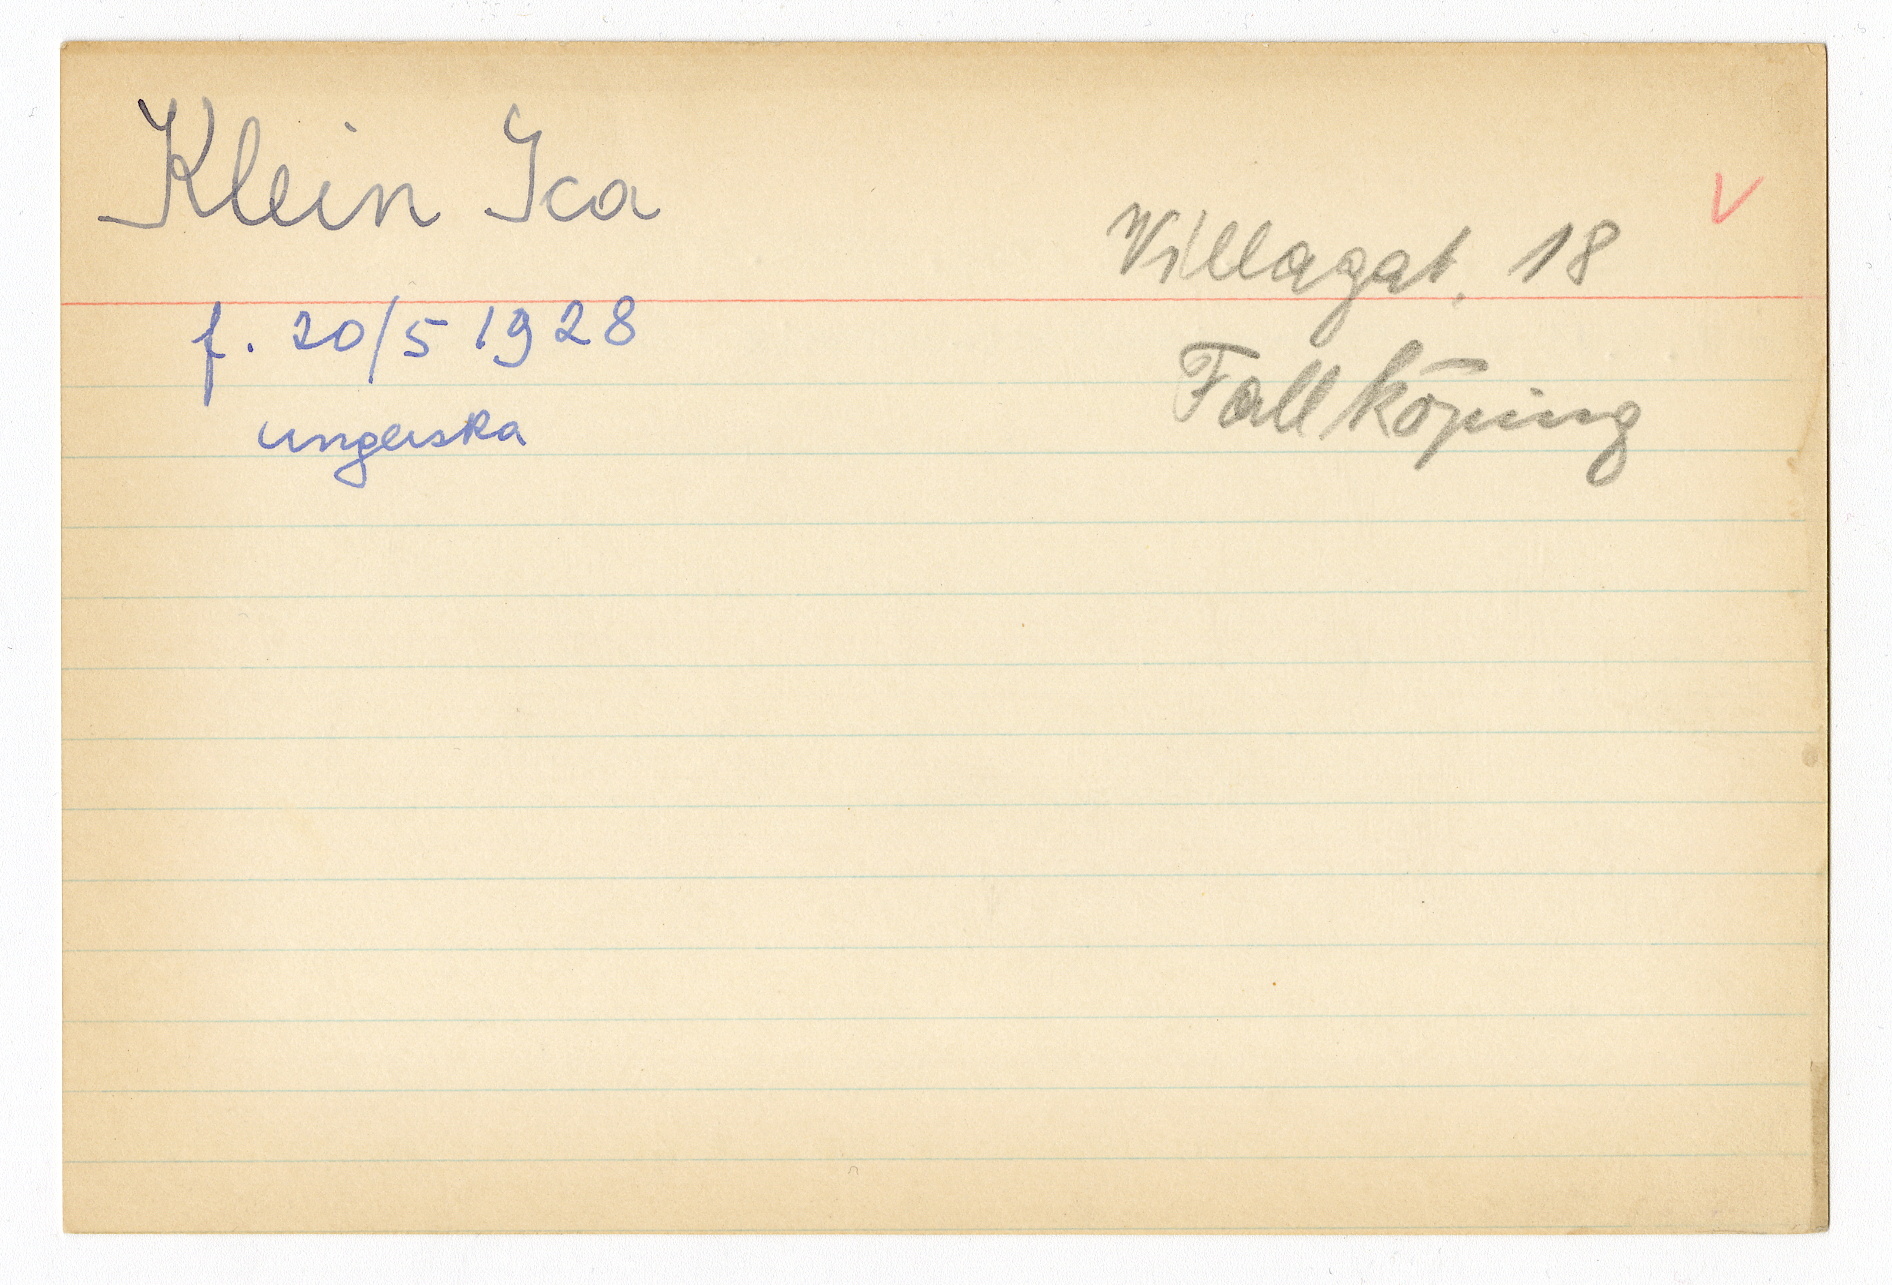 Klein Ica
Villagat. 18
Fallköping
f. 20/5 1928
ungerska